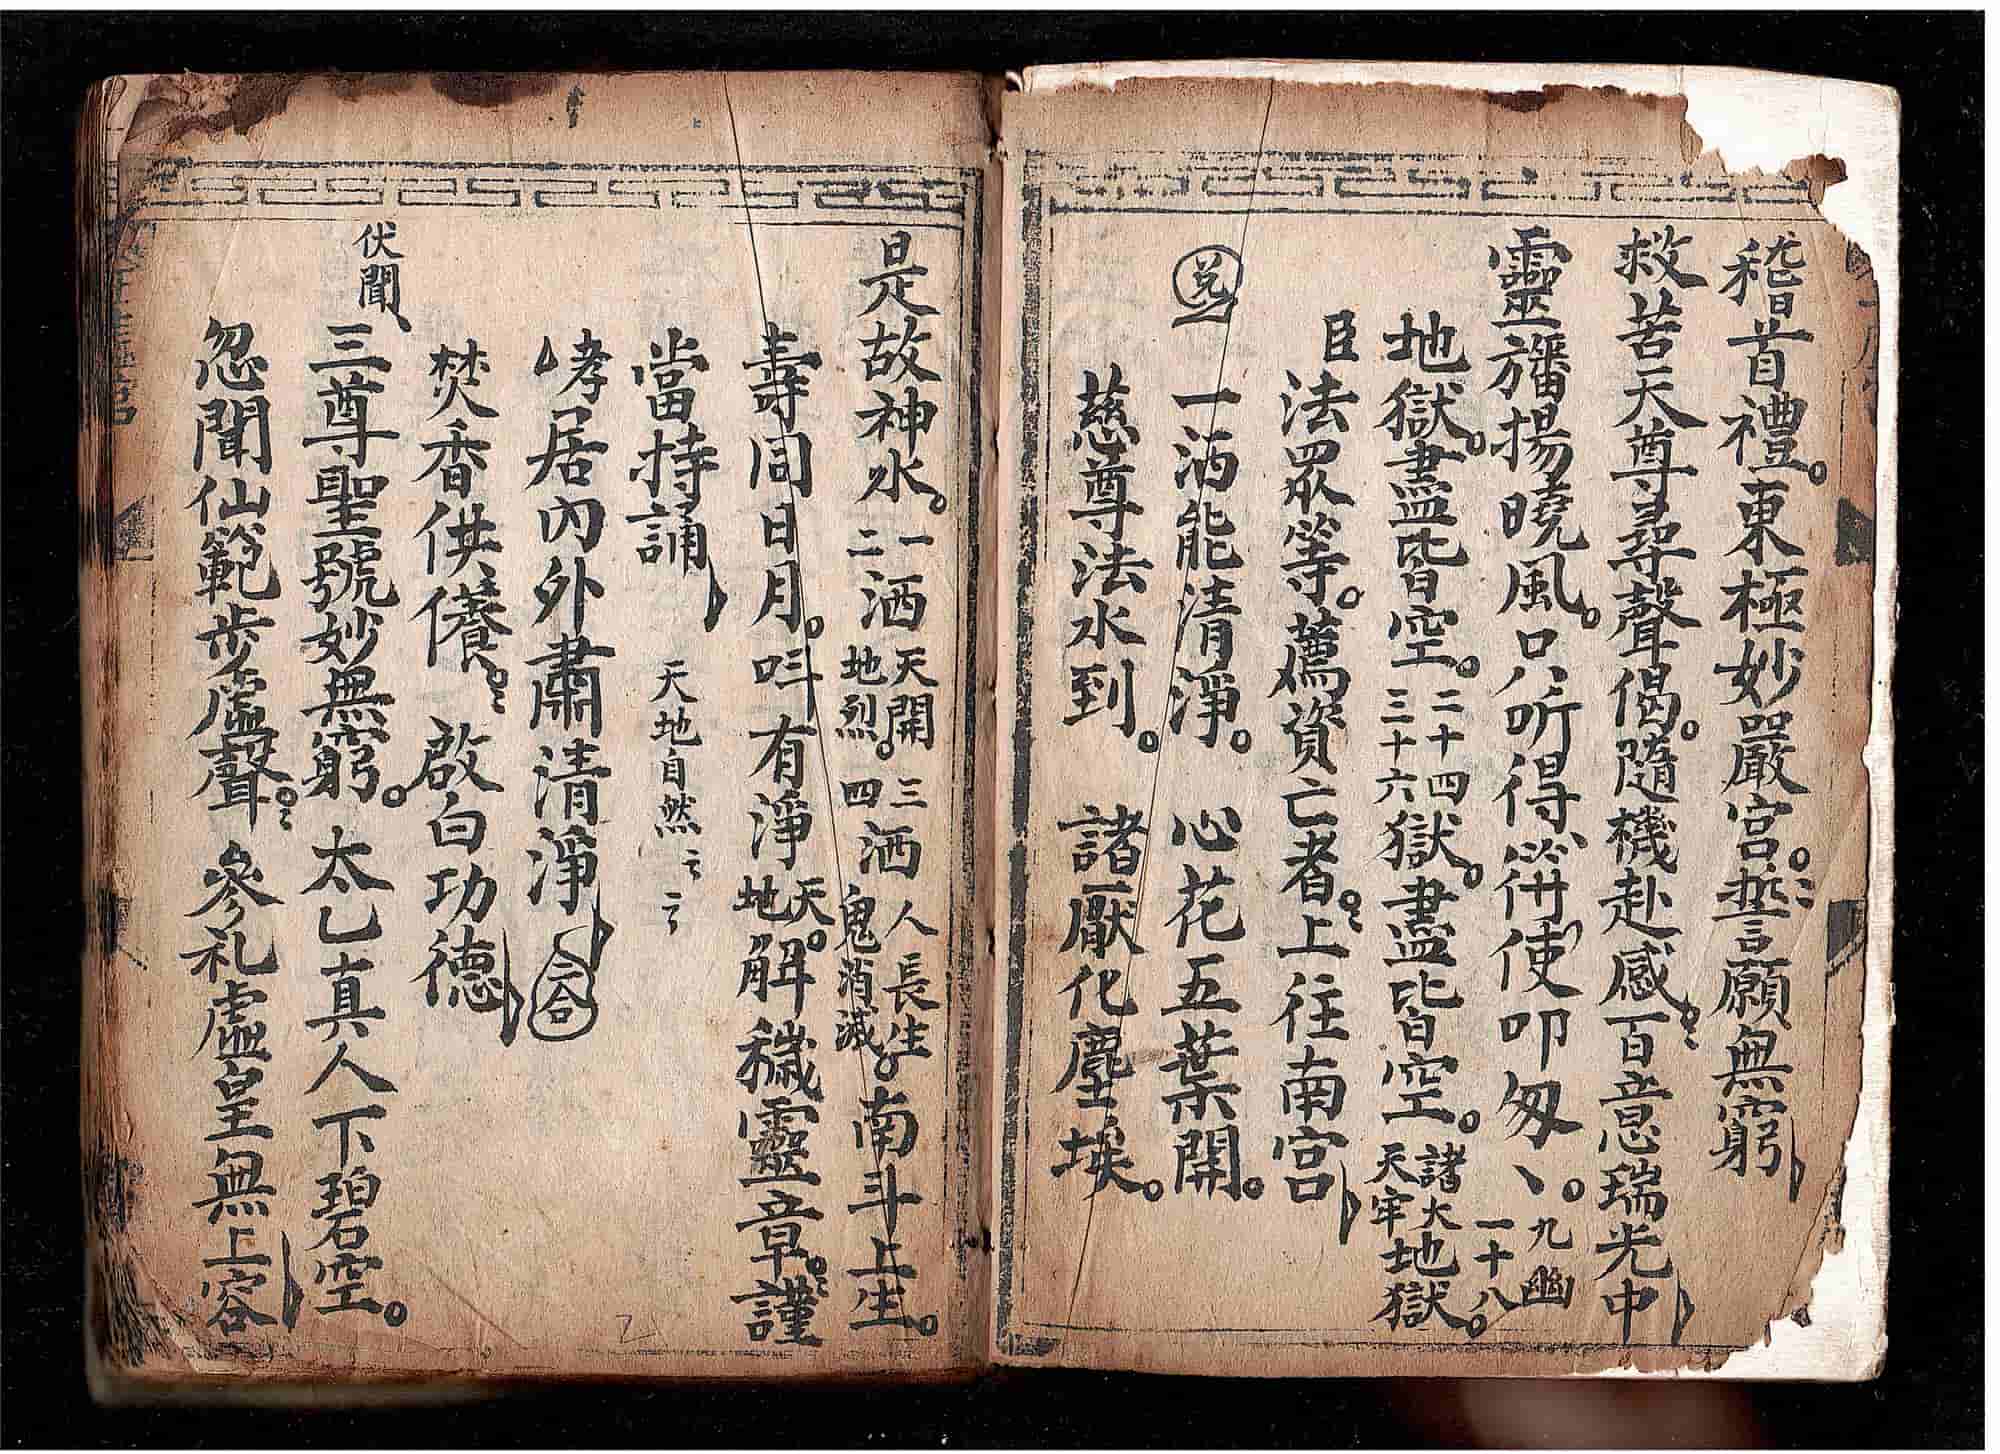 稽首禮。東極妙嚴宮。誓言願無窮
救苦天尊尋聲偈。隨機赴感百億瑞光中
靈旛揚曉風。只听得符使叩匆、。九幽一十八
地獄。盡皆空。二十四三十六獄。盡皆空。諸大地獄。天牢
臣法眾等。薦資亡者。上往南宮
兌一洒能清淨。心花五葉開。
慈尊法水到。諸厭化塵埃。
是故神水。一二洒天開地烈。三四洒人長生。鬼消滅南斗上生。
壽同日月。吽有淨天。地解穢靈章。謹
當持誦 天地自然
孝居內外肅清淨
焚香供養。啟白功德
伏聞三尊聖號妙無窮。太乙真人下碧空。
忽聞仙範步虛聲。參礼虛皇無上容